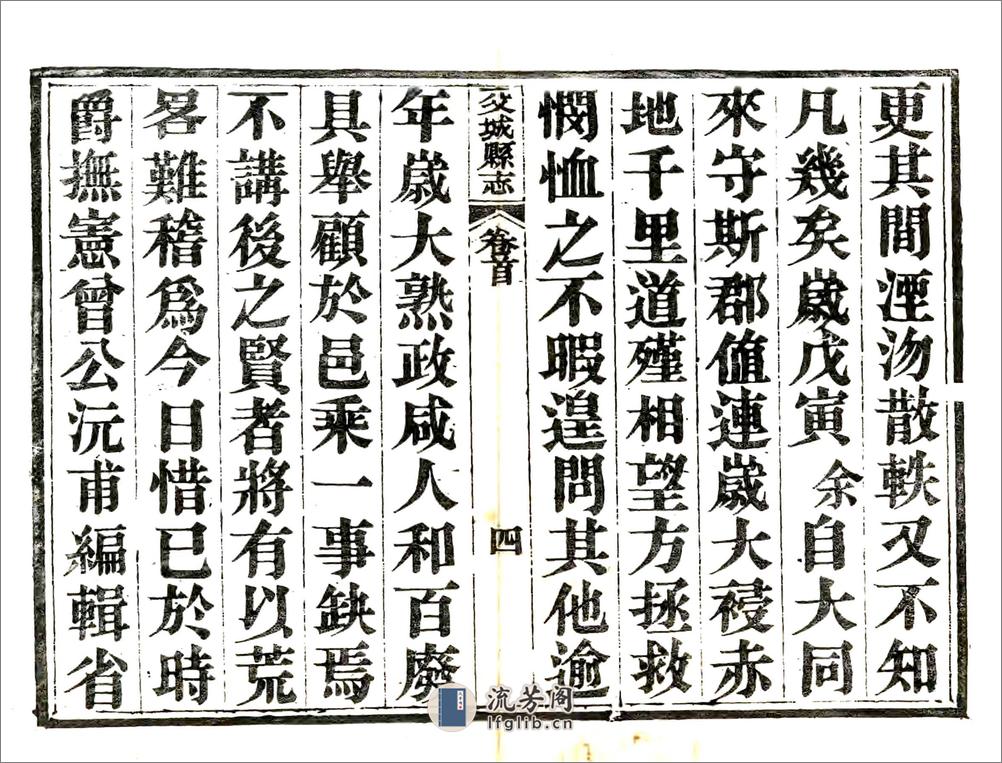 更其間湮沕散軼又不知
凡幾矣歲戊寅余自大同
來守斯郡値連歲大祲赤
地千里道殣相望方拯救
憫恤之不暇遑問其他逾
交城縣志
卷首
四
年歲大熟政咸人和百廢
具舉顧於邑乘一事缺焉
不講後之賢者將有以荒
畧難稽爲今日惜已於時
爵撫憲曾公沅甫編輯省
流芳阁
lfglib.cn